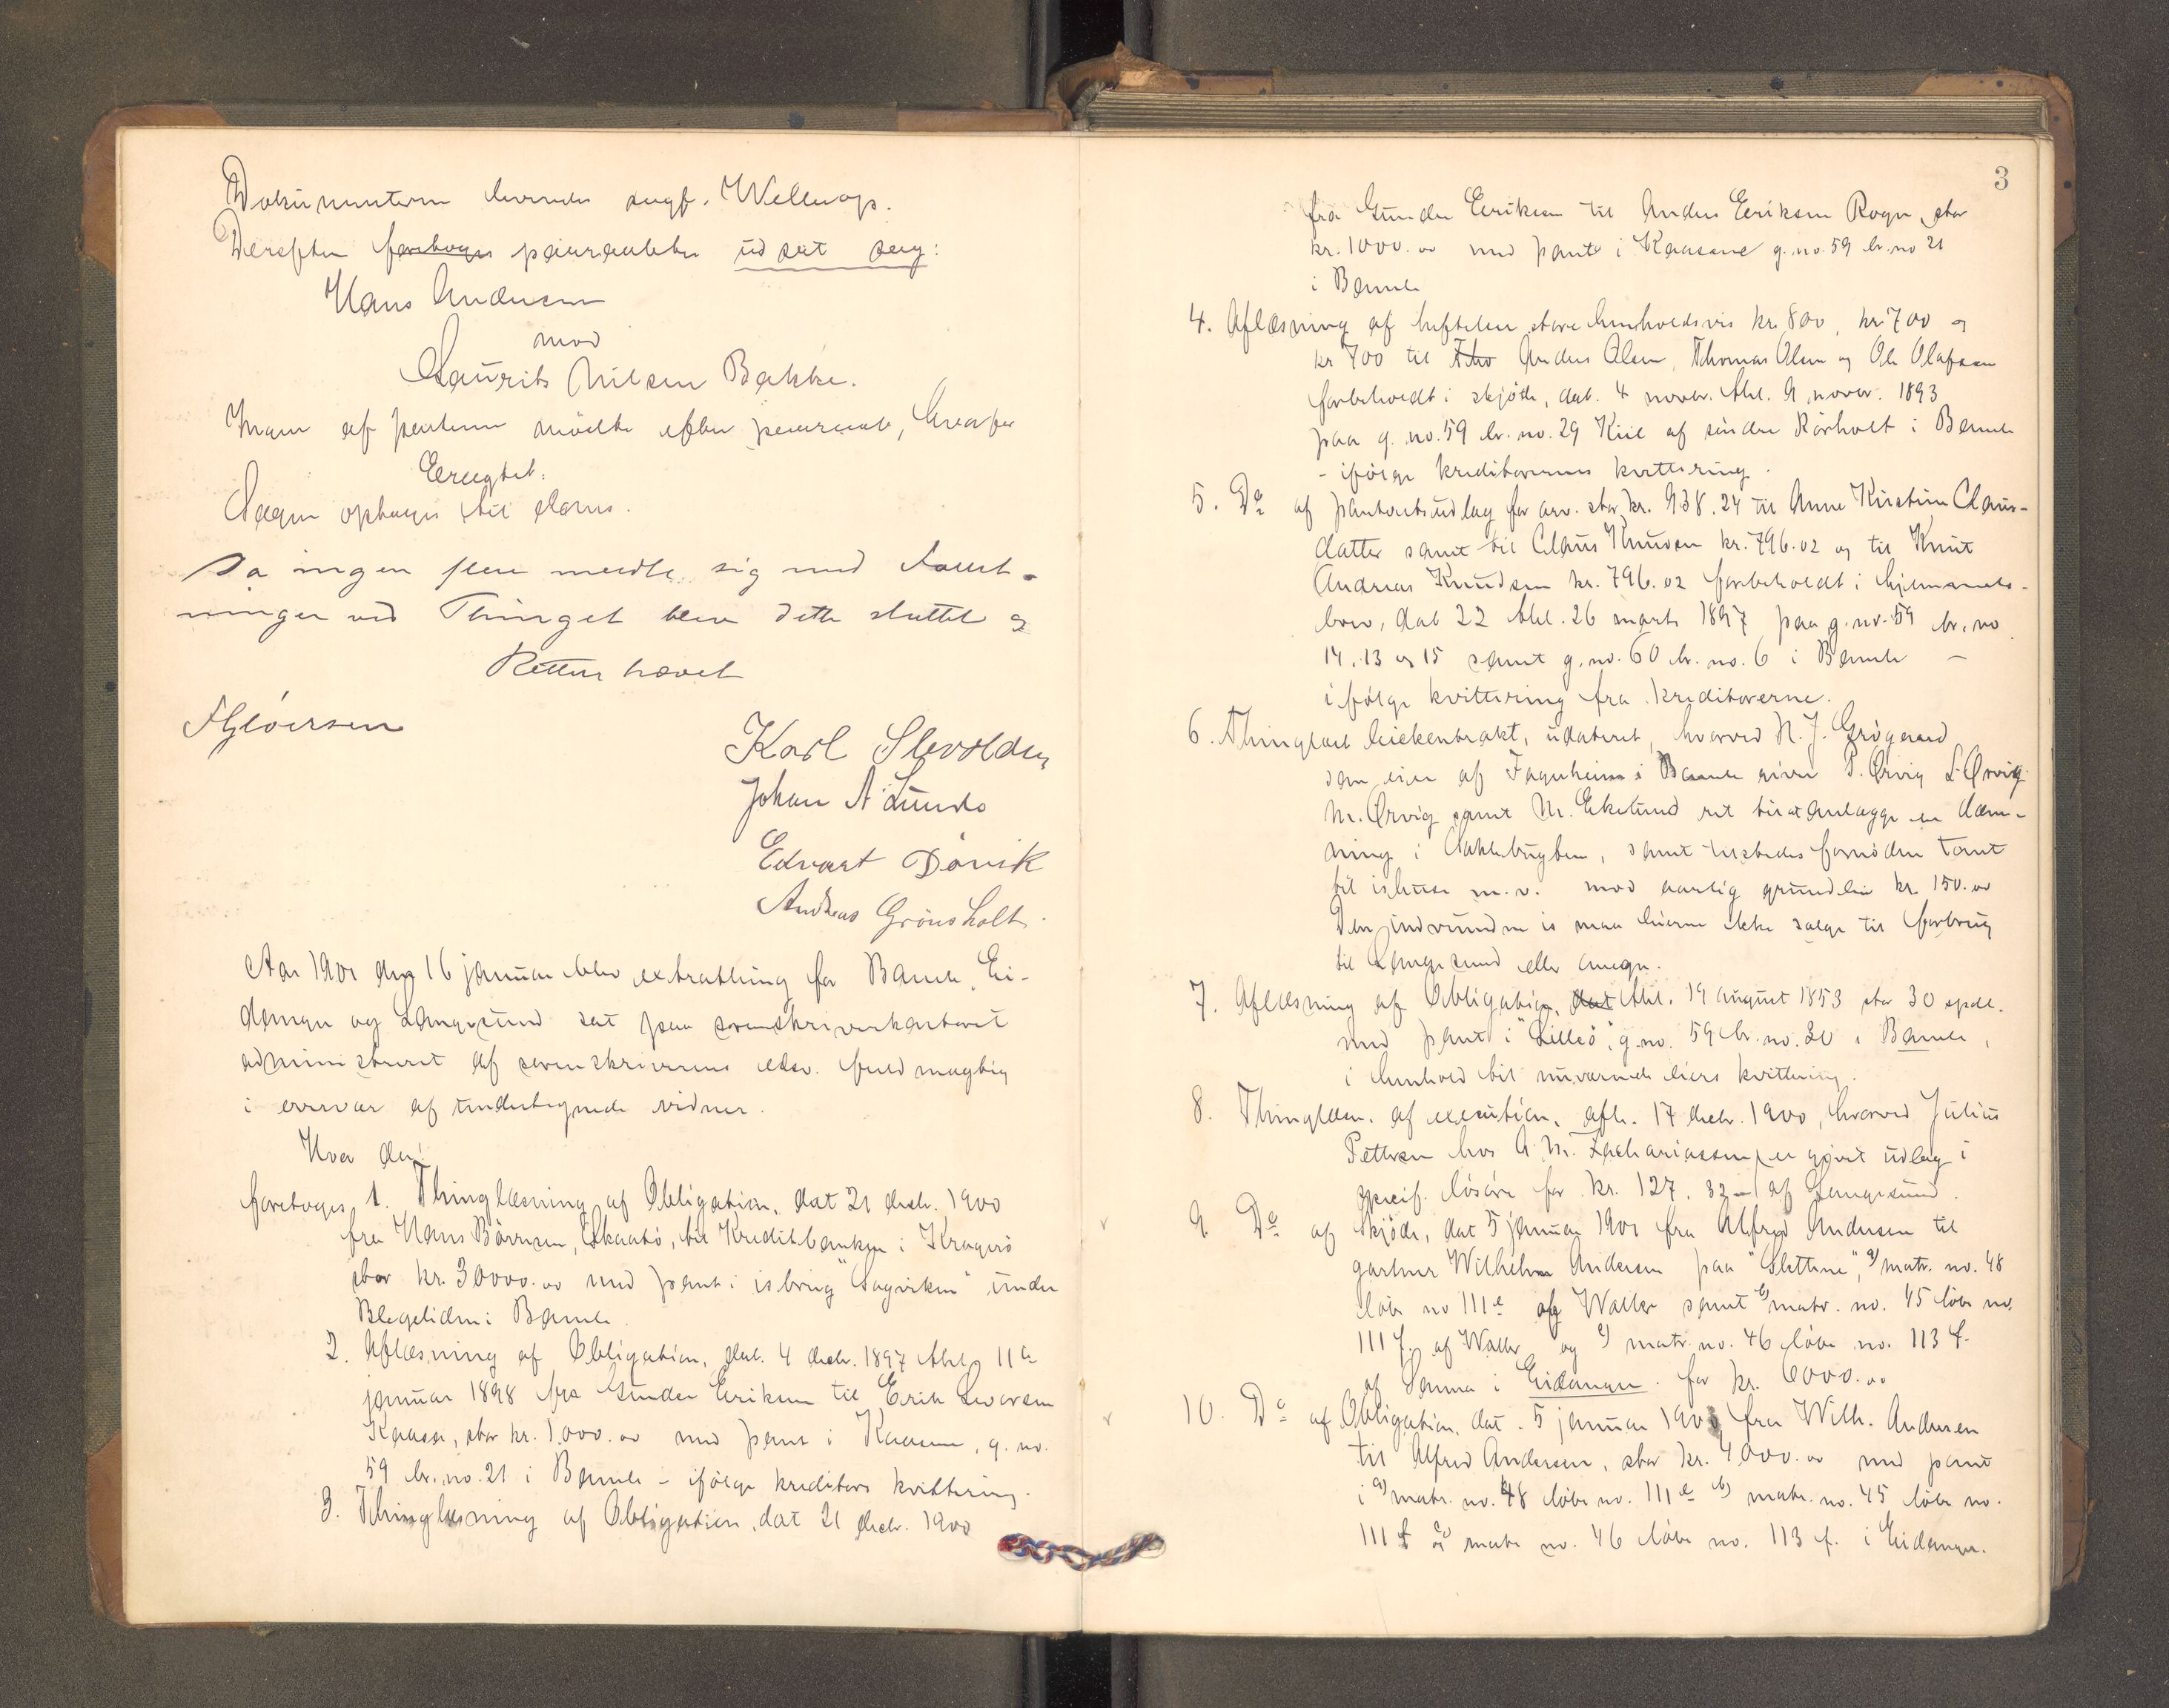 Dokumenterne leveredes sagf. Wellerop.
Derefter foretoges paaraabtes udsat sag:
Hans Andersen
mod
Laurits Nilsen Bakke.
Ingen af parterne mødte efter paaraab, hvorfor
Eragtet:
Sagen optages til doms.
Da ingen flere meldte sig med Forret-
ninger ved Thinget blev dette sluttet og
Retten hævet
Karl Slevolden
Johan A Lunde
Edvart Dörik
Andreas Grönsholt.
Aar 1901 den 16 januar blev extrathing for Bamle, Ei-
danger og Langesund sat paa sorenskriverkontoret
administreret af sorenskriverens edsv. fuldmægtig
i overvær af undertegnede vidner.
Hvor da:
foretoges 1. Thinglæsning af Obligation, dat 21 decbr. 1900
fra Hans Börresen, Skaatö, til Kreditbanken i Kragerö
stor kr. 30000.00 med pant i isbrug "Sagviken" under
Blegeliden i Bamle.
2. Aflæsning af Obligation, dat. 4 decbr. 1897 thl. 11te
januar 1898 fra Gunder Eriksen til Erik Siversen
Kaasa, stor kr. 1,000.00 med pant i Kaasene, g. no.
59 br. no. 21 i Bamle – ifölge kreditors kvittering.
3. Thinglæsning af Obligation, dat 21 decbr. 1900
3
fra Gunder Eeriksen til Anders Eeriksen Rogn, stor
kr. 1000.00 med pant i Kaasene g. no. 59 br. no 21
i Bamle
4. Aflæsning af heftelser store henholdsvis kr. 800, kr. 700 og
kr 700 til Tho Anders Olsen, Thomas Olsen og Ole Olafsen
forbeholdt i skjöde, dat. 4 novbr. thl. 9 novbr. 1893
paa g. no. 59 br. no. 29 Kiil af söndre Rörholt i Bamle
– ifölge kreditorernes kvittering.
5. Do af panteretsudlæg for arv. stor kr. 938.24 til Anne Kirstine Claus-
datter samt til Claus Knudsen kr. 796.02 og til Knut
Andreas Knudsen kr. 796.02 forbeholdt i hjemmels-
brev, dat 22 thl. 26 marts 1897 paa g. no. 59 br. no.
14. 13 og 15 samt g. no. 60 br. no. 6 i Bamle –
ifölge kvittering fra kreditorerne.
6. Thinglæst leiekontrakt, udateret, hvorved N. J. Grögaard
som eier af Fagerheim i Bamle giver P. Örvig L. Örvig
M. Örvig samt M. Ekelund ret til at anlægge en dæm-
ning i Saltebugten, samt tilstedes fornöden tomt
til ishuse m. v. mod aarlig grundleie kr. 150.00
Den indvundne is maa leierne ikke sælge til forbrug
til Langesund eller omegn.
7. Aflæsning af Obligation, dat thl. 19 august 1853 stor 30 spdl.
med pant i "Lilleö", g. no. 59 br. no. 30 i Bamle,
i henhold til nuværende eiers kvittering.
8. Thinglæsn. af execution, afh. 17 decbr. 1900, hvorved Julius
Pettersen hos A. M. Zachariassen er gjort udlæg i
specif. lösöre for kr. 127.32 – af Langesund.
9. Do af skjöde, dat 5 januar 1901 fra Alfred Andersen til
gartner Wilhelm Andersen paa "Slettene", a) matr. no. 48
löbe no 111 e af Waller samt b) matr. no. 45 löbe no.
111 f. af Waller og c) matr. no. 46 löbe no. 113 f.
af Sanna i Eidanger. for kr. 6000.00
10. Do af Obligation, dat. 5 januar 1901 fra Wilh. Andersen
til Alfred Andersen, stor kr. 4,000.00 med pant
i a) matr. no. 48 löbe no. 111 e b) matr. no. 45 löbe no.
111 f og c) matr no. 46 löbe no. 113 f. i Eidanger.